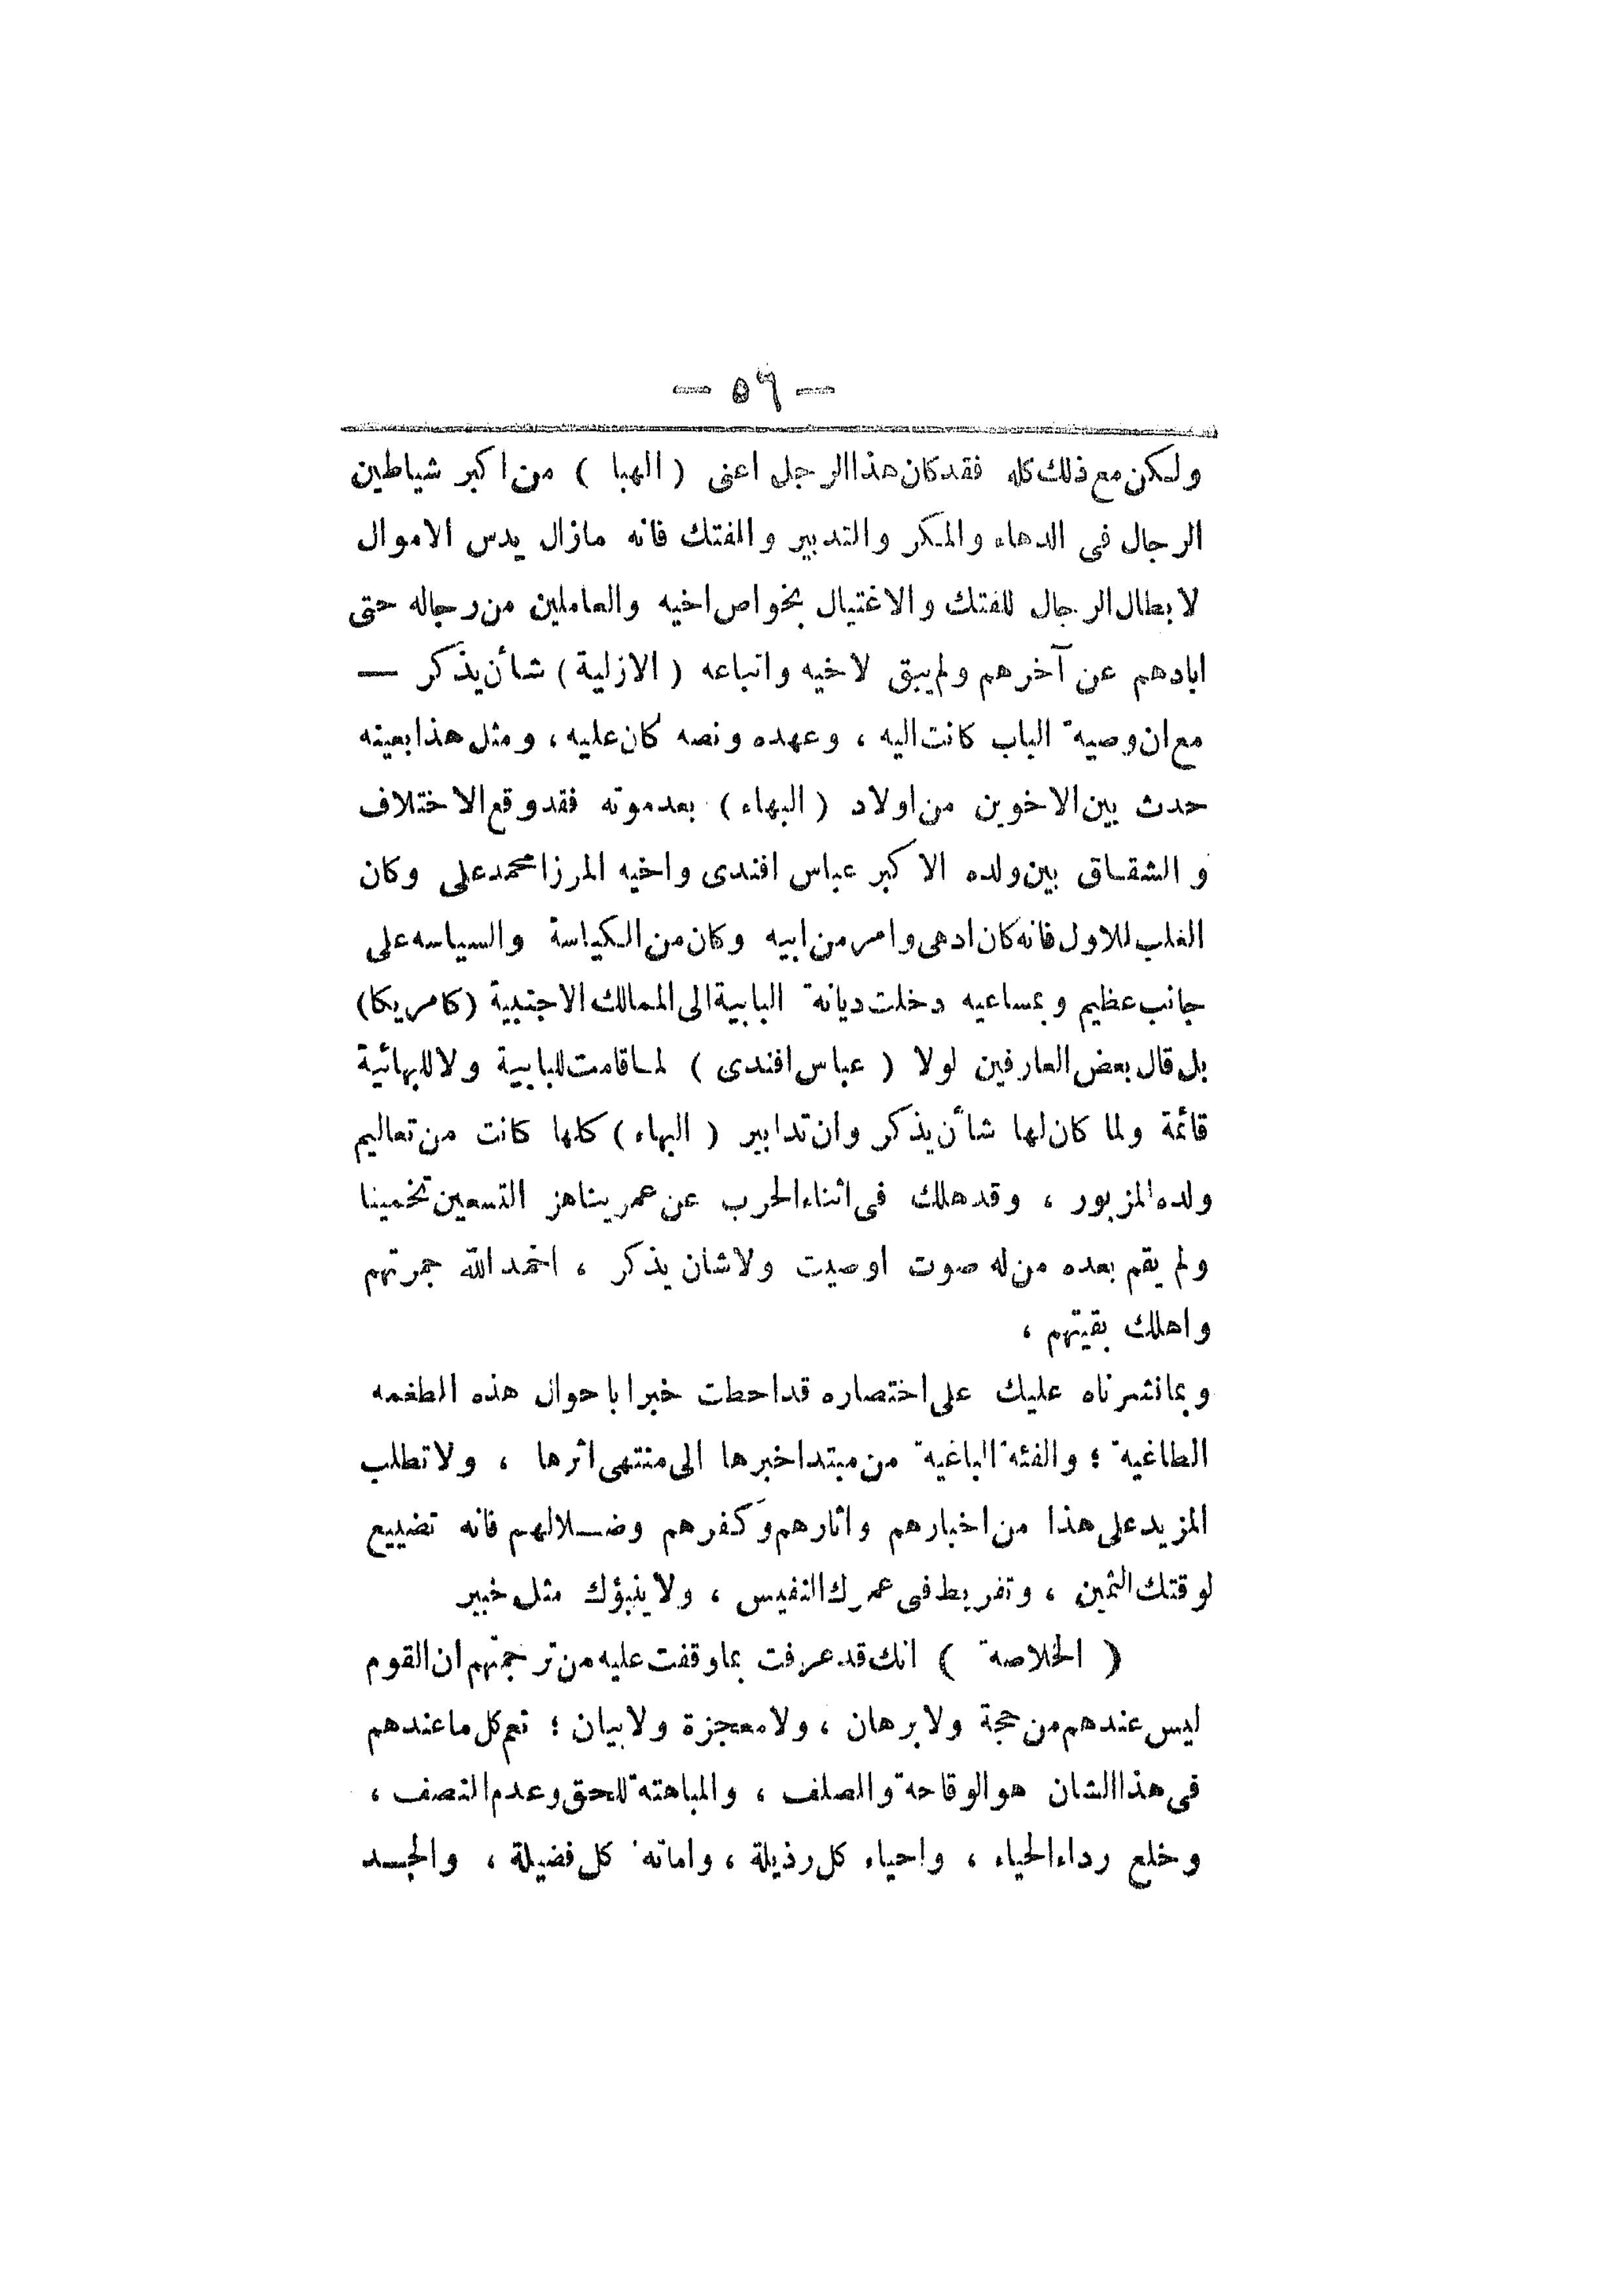 — ٥٩ —
ولكن مع ذلك كله فقد كان هذا الرجل اعنى ( الهبا ) من اكبر شياطين
الرجال فى الدهاء والمكر والتدبير والفتك فانه مازال يدس الاموال
لابطال الرجال للفتك والاغتيال بخواص اخيه والعاملين من رجاله حتى
ابادهم عن آخرهم ولم يبق لاخيه واتباعه ( الازلية ) شأن يذكر —
مع ان وصية الباب كانت اليه ، وعهده ونصه كان عليه ، ومثل هذا بعينه
حدث بين الاخوين من اولاد ( البهاء ) بعد موته فقد وقع الاختلاف
والشقاق بين ولده الاكبر عباس افندى واخيه المرزا محمد على وكان
الغلب للاول فانه كان ادهى وامر من ابيه وكان من الكياسة والسياسه على
جانب عظيم وبمساعيه دخلت ديانة البابية الى الممالك الاجنبية (كامريكا)
بل قال بعض العارفين لولا ( عباس افندى ) لما قامت للبابية ولا للبهائية
قائمة ولما كان لها شأن يذكر وان تدابير ( البهاء ) كلها كانت من تعاليم
ولده المزبور ، وقد هلك فى اثناء الحرب عن عمر يناهز التسعين تخمينا
ولم يقم بعده من له صوت اوصيت ولا شان يذكر ، اخمد الله جمرتهم
واهلك بقيتهم ،
وبما نشرناه عليك على اختصاره قد احطت خبرا باحوال هذه الطغمه
الطاغية ؛ والفئة الباغية من مبتدا خبرها الى منتهى اثرها ، ولا تطلب
المزيد على هذا من اخبارهم واثارهم وكفرهم وضلالهم فانه تضييع
لوقتك الثمين ، وتفريط فى عمرك النفيس ، ولا ينبؤك مثل خبير
( الخلاصة ) انك قد عرفت بما وقفت عليه من ترجمتهم ان القوم
ليس عندهم من حجة ولا برهان ، ولا معجزة ولا بيان ؛ نعم كل ما عندهم
فى هذا الشان هو الوقاحة والصلف ، والمباهتة للحق وعدم النصف ،
وخلع رداء الحياء ، واحياء كل رذيلة ، واماتة كل فضيلة ، والجد